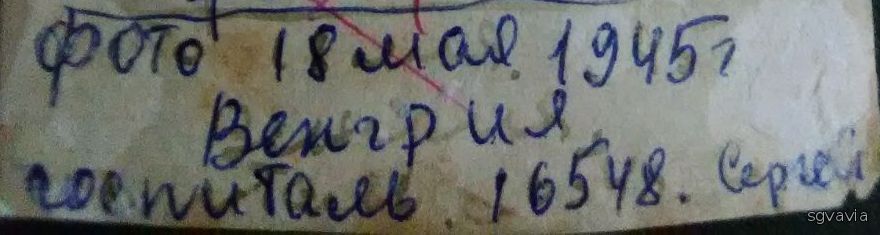 фото 18 мая. 1945г
Венгрия
госпиталь. 16548. Сергей
sgvavia